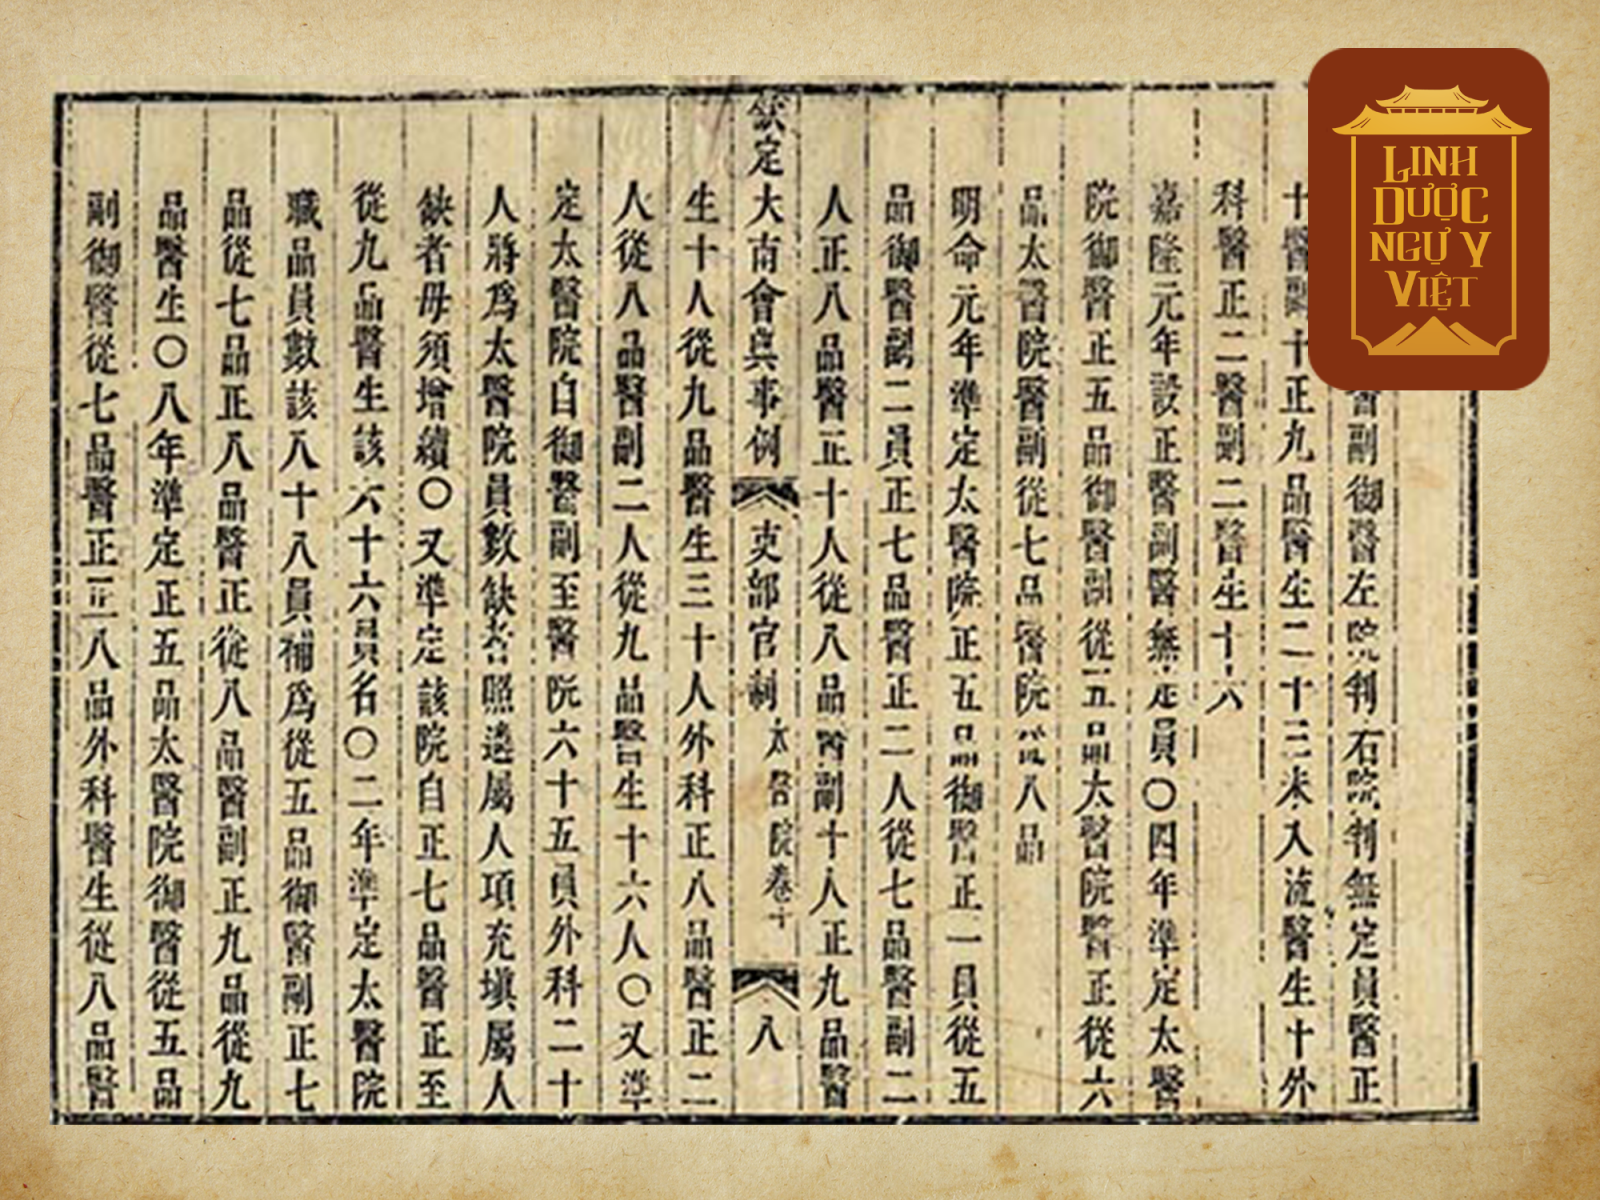 醫副御醫左院判右院判無定員醫正
十醫副十正九品醫生二十三未入流醫生十外
科醫正二醫副二醫生十六
嘉隆元年設正醫副醫無定員〇四年準定太醫
院御醫正五品御醫副從五品太醫院醫正從六
品太醫院醫副從七品醫院從八品
明命元年準定太醫院正五品御醫正一員從五
品御醫副二員正七品醫正二人從七品醫副二
人正八品醫正十人從八品醫副十人正九品醫
欽定大南會典事例 吏部官制 太醫院卷十 八
生十人從九品醫生三十人外科正八品醫正二
人從八品醫副二人從九品醫生十六人〇又準
定太醫院自御醫副至醫院六十五員外科二十
人將為太醫院員數缺者照遴屬人項充塡屬人
缺者毋須增續〇又準定該院自正七品醫正至
從九品醫生該六十六員名〇二年準定太醫院
職品員數該八十八員補為從五品御醫副正七
品從七品正八品醫正從八品醫副正九品從九
品醫生〇八年準定正五品太醫院御醫從五品
副御醫從七品醫正正八品外科醫生從八品醫
LINH
DƯỢC
NGỰ Y
VIỆT